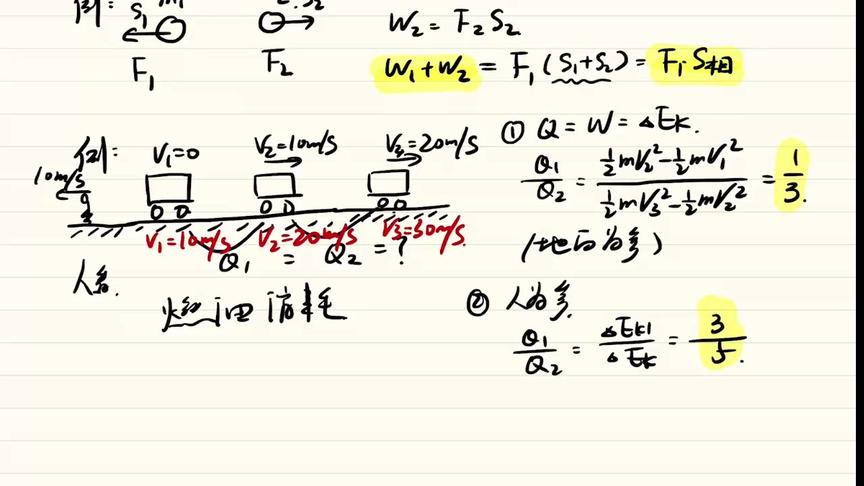 例: S₁
W₂ = F₂S₂
F₁ F₂
W₁+W₂ = F₁(S₁+S₂) = F₁·S相
例: V₁=0 V₂=10m/s V₃=20m/s
10m/s
V₁=10m/s V₂=20m/s V₃=30m/s.
Q₁ = Q₂ = ?
人参.
燃油消耗
① Q = W = ΔEk.
Q₁/Q₂ = (½mV₂²-½mV₁²)/(½mV₃²-½mV₂²) = 1/3.
(地面为参)
② 人为参.
Q₁/Q₂ = ΔEk1/ΔEk = 3/5.